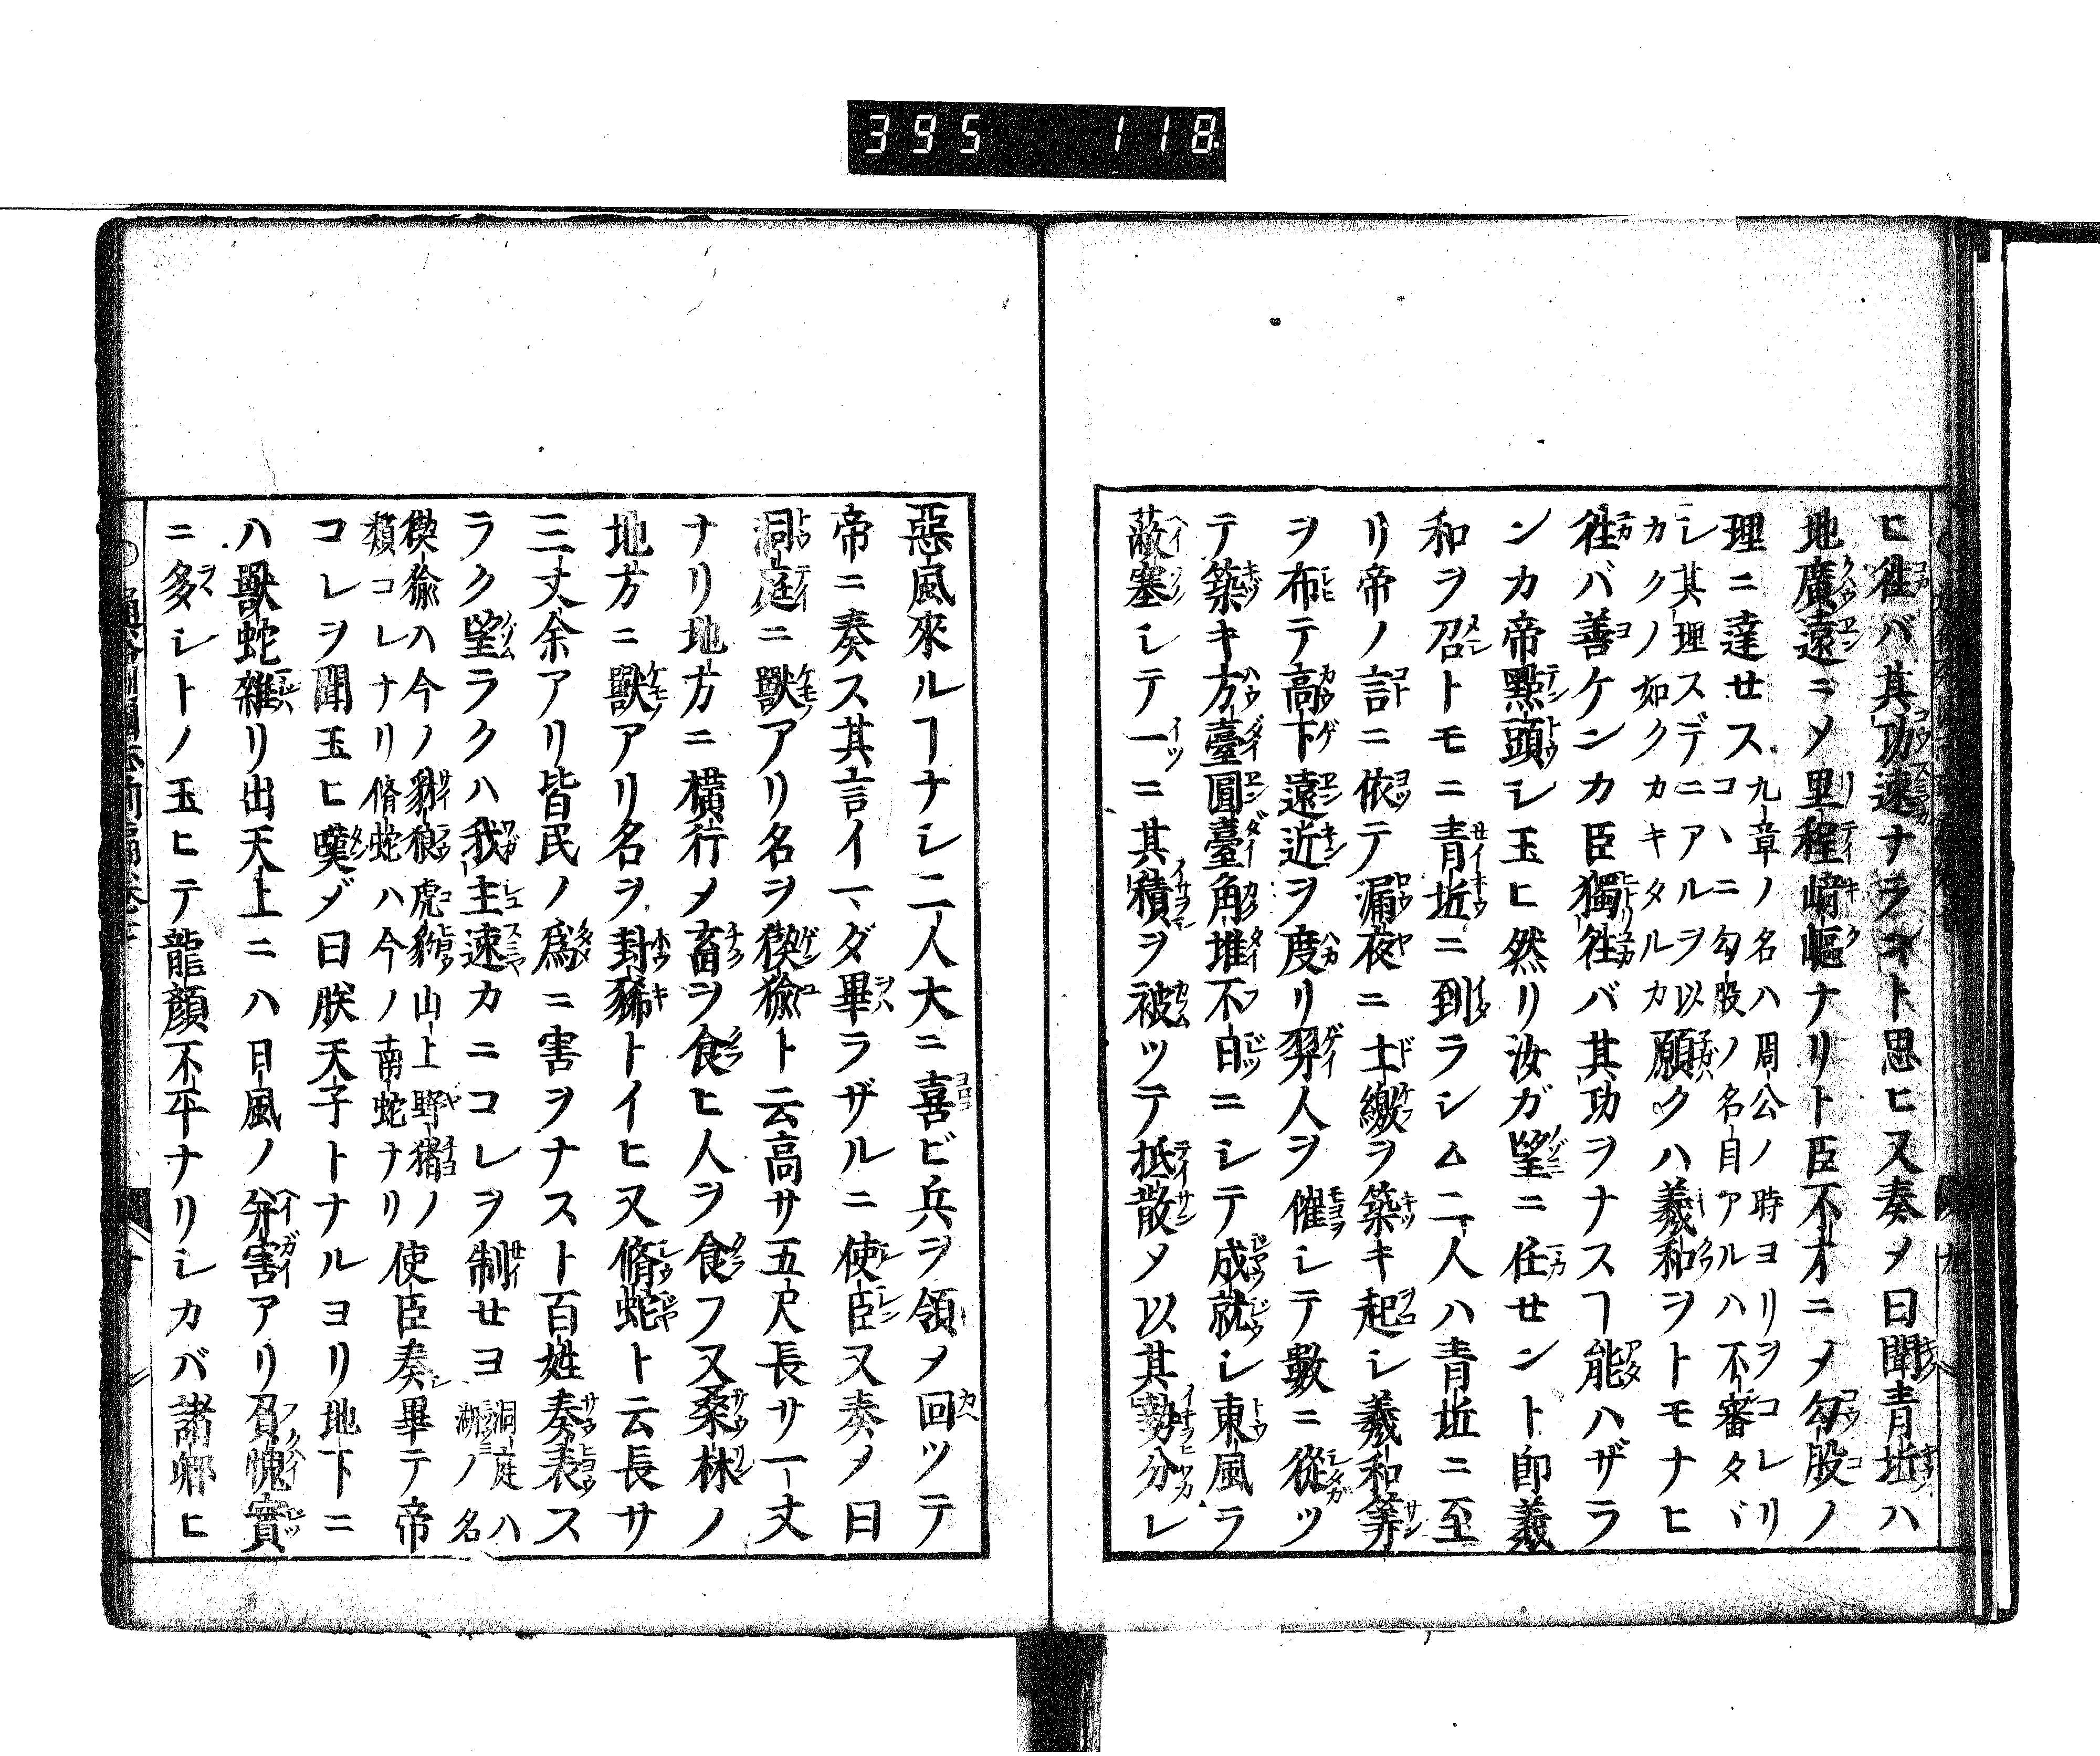 395 118
ヒ徃バ其功速ナラント思ヒ又奏メ曰聞青坵ハ
地廣遠ニメ里程﨑嶇ナリト臣不才ニメ勾股ノ
理ニ達せス九章ノ名ハ周公ノ時ヨリヲコレリコヽニ勾股ノ名自アルハ不審タバ
シ其理スデニアルヲ以カクノ如クカキタルカ願クハ羲和ヲトモナヒ
徃バ善ケンカ臣獨徃バ其功ヲナスヿ能ハザラ
ンカ帝點頭シ玉ヒ然リ汝ガ望ニ任せント卽羲
和ヲ召トモニ青坵ニ到ラシム二人ハ青坵ニ至
リ帝ノ言ニ依テ漏夜ニ土繳ヲ築キ起シ羲和等
ヲ布テ高下遠近ヲ度リ羿人ヲ催シテ數ニ從ツ
テ築キ方臺圓臺角堆不日ニシテ成就シ東風ラ
蔽塞シテ一ニ其積ヲ被ツテ抵散メ以其勢分レ
惡風來ルヿナシ二人大ニ喜ビ兵ヲ領メ回ツテ
帝ニ奏ス其言イマダ畢ラザルニ使臣又奏メ曰
洞庭ニ獸アリ名ヲ猰貐ト云高サ五尺長サ一丈
ナリ地方ニ横行メ畜ヲ食ヒ人ヲ食フ又桑林ノ
地方ニ獸アリ名ヲ封豨トイヒ又脩蛇ト云長サ
三丈余アリ皆民ノ爲ニ害ヲナスト百姓奏表ス
ラク望ラクハ我主速カニコレヲ制せヨ洞庭ハ湖ノ名
猰貐ハ今ノ豺狼虎豹山上野猪ノ類コレナリ脩蛇ハ今ノ南蛇ナリ使臣奏畢テ帝
コレヲ聞玉ヒ嘆メ曰朕天子トナルヨリ地下ニ
ハ獸蛇雜リ出天上ニハ日風ノ分害アリ負愧實
ニ多シトノ玉ヒテ龍顏不平ナリシカバ諸卿ヒ